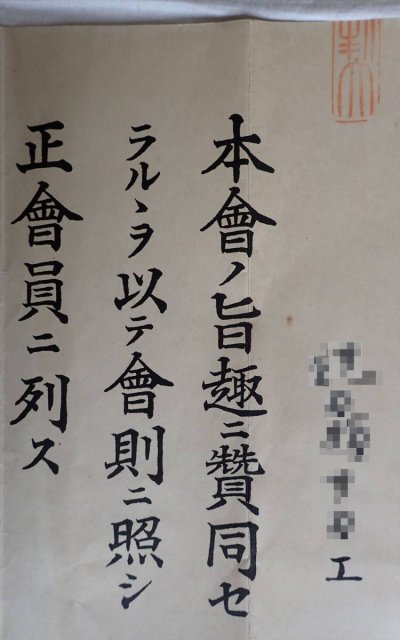 エ
本會ノ旨趣ニ贊同セ
ラルヽヲ以テ會則ニ照シ
正會員ニ列ス